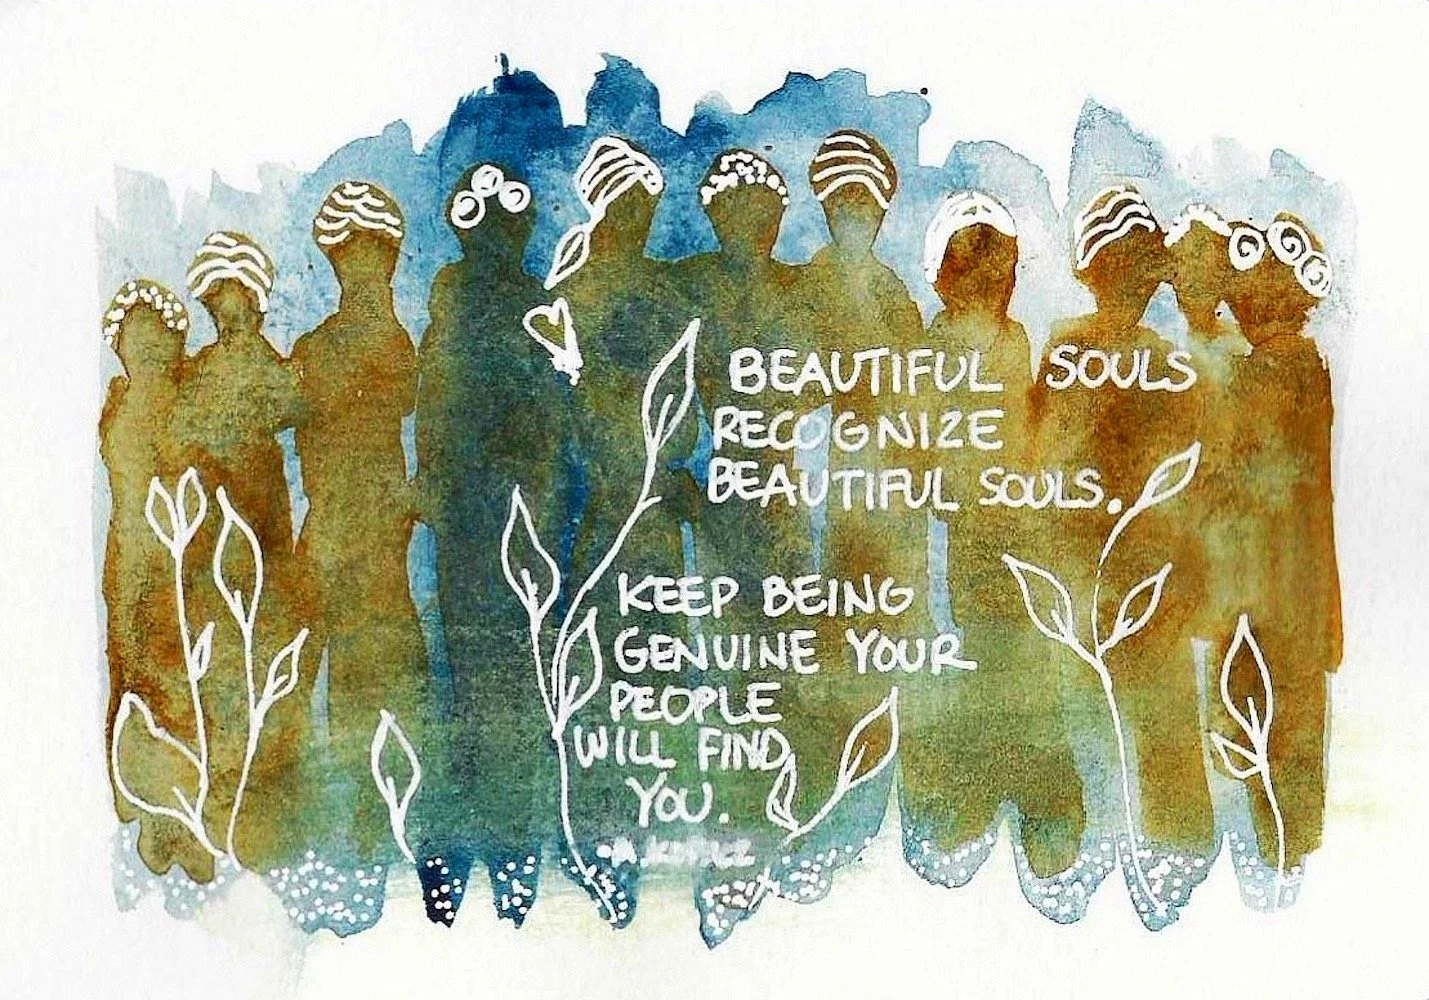 BEAUTIFUL SOULS
RECOGNIZE
BEAUTIFUL SOULS.
KEEP BEING
GENUINE YOUR
PEOPLE
WILL FIND
YOU.